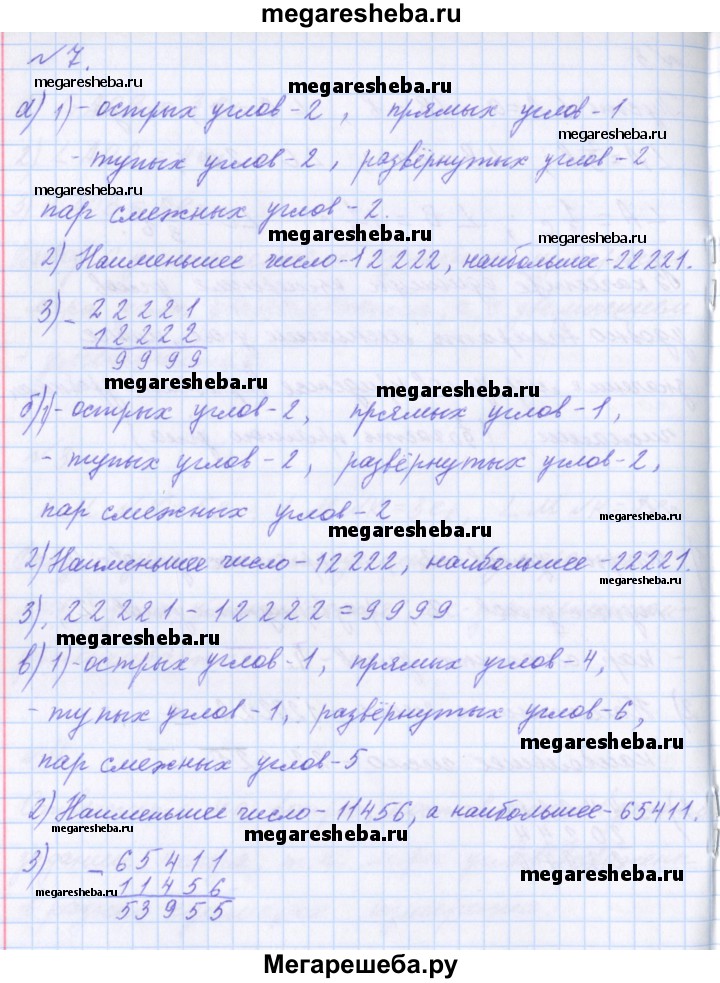 megaresheba.ru
№ 7.
megaresheba.ru megaresheba.ru
а) 1) - острых углов - 2, прямых углов - 1
megaresheba.ru
- тупых углов - 2, развёрнутых углов - 2
пар смежных углов - 2.
megaresheba.ru megaresheba.ru
2) Наименьшее число - 12 222, наибольшее - 22221.
3) - 22221
12222
9999
megaresheba.ru
megaresheba.ru
б) 1) - острых углов - 2, прямых углов - 1,
- тупых углов - 2, развёрнутых углов - 2,
пар смежных углов - 2
megaresheba.ru
megaresheba.ru
2) Наименьшее число - 12 222, наибольшее - 22221.
megaresheba.ru
3) 22221 - 12222 = 9999
megaresheba.ru
в) 1) - острых углов - 1, прямых углов - 4,
- тупых углов - 1, развёрнутых углов - 6,
megaresheba.ru
пар смежных углов - 5
2) Наименьшее число - 11456, а наибольшее - 65411.
megaresheba.ru megaresheba.ru
3) - 65411
megaresheba.ru
11456
megaresheba.ru
53955
Мегарешеба.ру